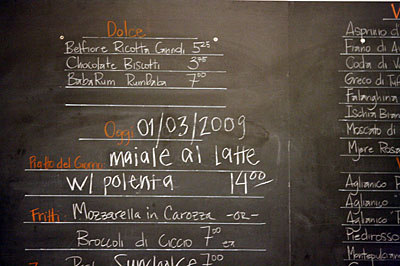 Dolce
Belfiore Ricotta Cannoli 5.25
Chocolate Biscotti 3.75
BabaRum Rumbaba 7.00
Oggi 01/03/2009
Piatto del Giorno: maiale al latte
w/ polenta 14.00
Fritti: Mozzarella in Carozza -or-
Broccoli di Ciccio 7.00 ea
7.00
Asprinio di
Fiano di A
Coda di V
Greco di Tuf
Falanghina
Ischia Bian
Moscato di
Mjere Rosa
Aglianico
Aglianico
Aglianico
Piedirosso
Montepulcian